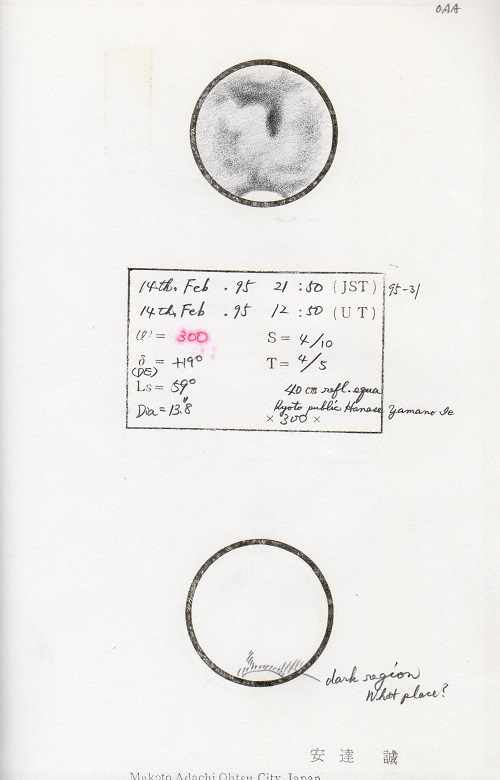 OAA
14th. Feb . 95 21 : 50 (JST) 95-31
14th. Feb . 95 12 : 50 (UT)
(ω) = 300 S = 4/10
δ = +19° T = 4/5
(DE)
Ls = 59° 40 cm refl. equa
Dia = 13".8 Kyoto public Hanase Yamano Ie
× 300 ×
dark region
What place?
安達 誠
Makoto Adachi Ohtsu City, Japan